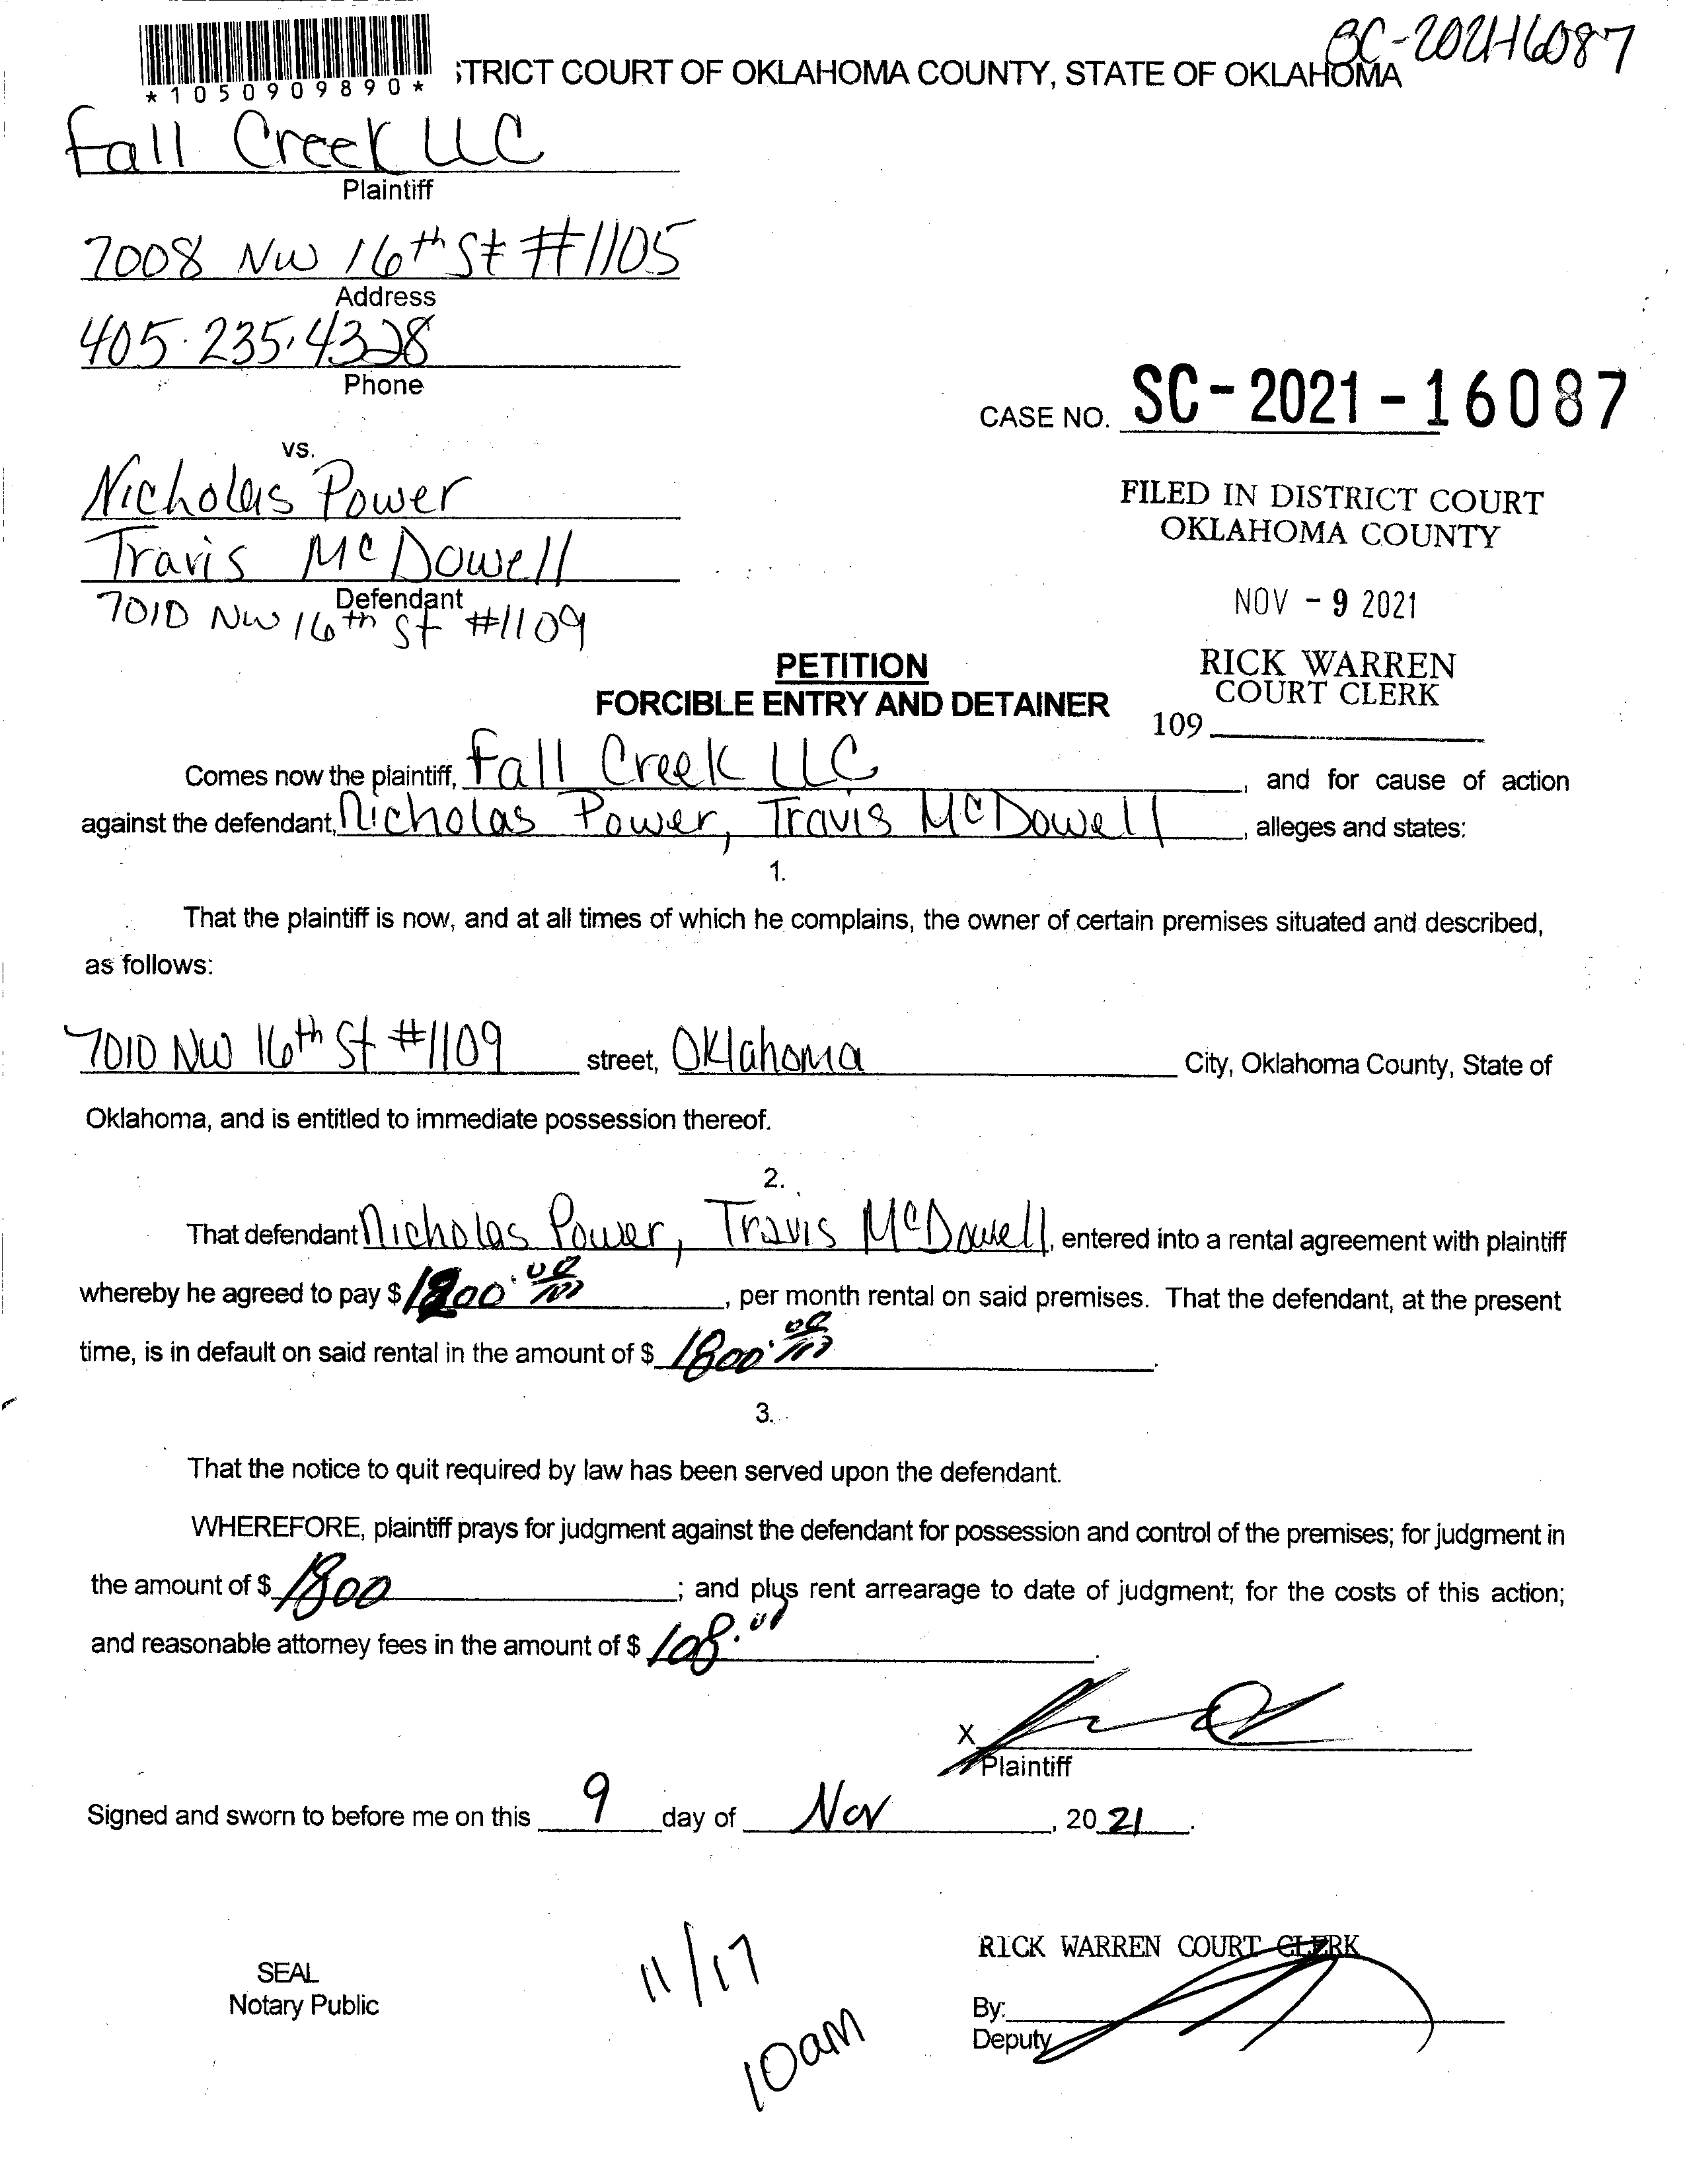 SC-2021-16087
*1050909890*
STRICT COURT OF OKLAHOMA COUNTY, STATE OF OKLAHOMA
Fall Creek LLC
Plaintiff
7008 NW 16th St #1105
Address
405.235.4328
Phone
CASE NO. SC-2021-16087
vs.
Nicholas Power
Travis McDowell
Defendant
7010 NW 16th St #1109
FILED IN DISTRICT COURT
OKLAHOMA COUNTY
NOV - 9 2021
RICK WARREN
COURT CLERK
109
PETITION
FORCIBLE ENTRY AND DETAINER
Comes now the plaintiff, Fall Creek LLC, and for cause of action
against the defendant, Nicholas Power, Travis McDowell, alleges and states:
1.
That the plaintiff is now, and at all times of which he complains, the owner of certain premises situated and described,
as follows:
7010 NW 16th St #1109 street, Oklahoma City, Oklahoma County, State of
Oklahoma, and is entitled to immediate possession thereof.
2.
That defendant Nicholas Power, Travis McDowell, entered into a rental agreement with plaintiff
whereby he agreed to pay $ 00/100, per month rental on said premises. That the defendant, at the present
time, is in default on said rental in the amount of $ 1800.00/100.
3.
That the notice to quit required by law has been served upon the defendant.
WHEREFORE, plaintiff prays for judgment against the defendant for possession and control of the premises; for judgment in
the amount of $ 1800; and plus rent arrearage to date of judgment; for the costs of this action;
and reasonable attorney fees in the amount of $ 108.00.
X
Plaintiff
Signed and sworn to before me on this 9 day of Nov, 2021.
SEAL
Notary Public
11/17
10am
RICK WARREN COURT CLERK
By:
Deputy